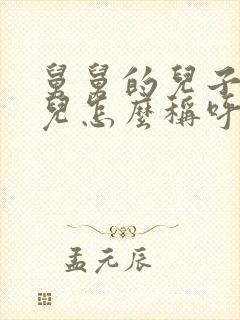 舅舅的兒子
兒怎麼稱呼
孟元辰